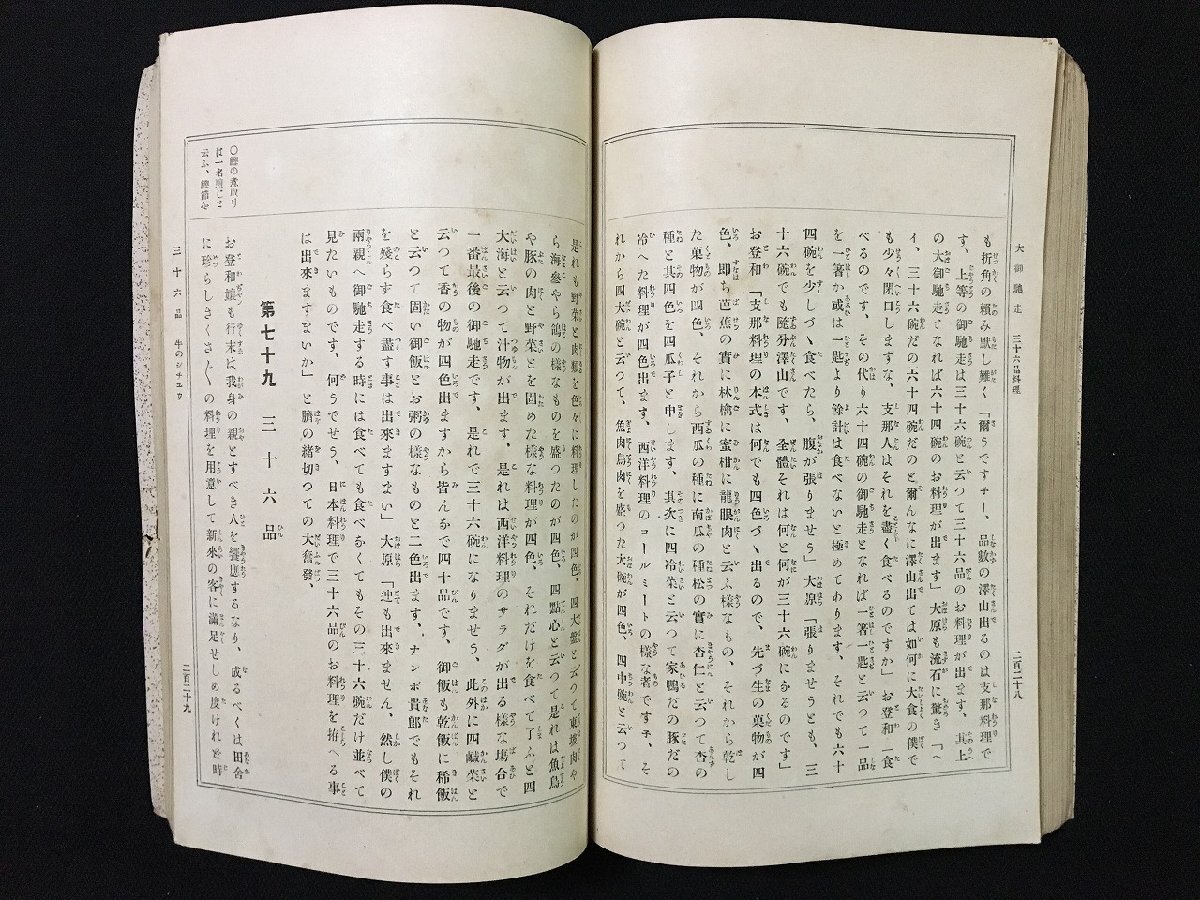 大御馳走　三十六品料理
二百二十八
も折角の頼み默し難く「爾うですチー、品數の澤山出るのは支那料理で
す、上等の御馳走は三十六碗と云つて三十六品のお料理が出ます、其上
の大御馳走になれば六十四碗のお料理が出ます」大原も流石に驚き「へ
イ、三十六碗だの六十四碗だのと爾んなに澤山出ては如何に大食の僕で
も少々閉口しますな、支那人はそれを盡く食べるのですか」お登和「食
べるのです、その代り六十四碗の御馳走となれば一箸一匙と云つて一品
を一箸か或は一匙より餘計は食べないと極めてあります、それでも六十
四碗を少しづゝ食べたら、腹が張りませう」大原「張りませうとも、三
十六碗でも隨分澤山です、全體それは何と何が三十六碗になるのです」
お登和「支那料理の本式は何でも四色づゝ出るので、先づ生の菓物が四
色、即ち芭蕉の實に林檎に蜜柑に龍眼肉と云ふ樣なもの、それから乾し
た菓物が四色、それから西瓜の種に南瓜の種松の實に杏仁と云つて杏の
種と其四色を四瓜子と申します、其次に四冷菜と云つて家鴨だの豚だの
冷へた料理が四色出ます、西洋料理のコールミートの樣な者です子、そ
れから四大碗と云つて、魚肉鳥肉を盛つた大碗が四色、四中碗と云つて
是れも野菜と肉類を色々に料理したのが四色、四大盤と云つて東坡肉や
ら海參やら鴿の樣なものを盛つたのが四色、四點心と云つて是れは魚鳥
や豚の肉と野菜とを固めた樣な料理が四色、それだけを食べて了ふと四
大海と云つて汁物が出ます、是れは西洋料理のサラダが出る樣な塲合で
一番最後の御馳走です、是れで三十六碗になりませう、此外に四鹹菜と
云つて香の物が四色出ますから皆んなで四十品です、御飯も乾飯に稀飯
と云つて固い御飯とお粥の樣なものと二色出ます、ナンボ貴郎でもそれ
を殘らず食べ盡す事は出來ますまい」大原「迚も出來ません、然し僕の
兩親へ御馳走する時には食べても食べなくてもその三十六碗だけ並べて
見たいものです、何うでせう、日本料理で三十六品のお料理を拵へる事
は出來ますまいか」と臍の緒切つての大奮發、
第七十九　三十六品
お登和孃も行末は我身の親とすべき人を饗應するなり、成るべくは田舍
に珍らしきくさ〲の料理を用意して新來の客に滿足せしめ度けれど時
三十六品　牛のシチユウ
二百二十九